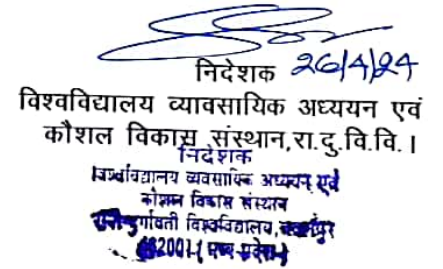 निदेशक 26/4/24
विश्वविद्यालय व्यावसायिक अध्ययन एवं
कौशल विकास संस्थान,रा.दु.वि.वि. ।
निदेशक
विश्वविद्यालय व्यवसायिक अध्ययन एवं
कौशल विकास संस्थान
रानी दुर्गावती विश्वविद्यालय, जबलपुर
482001 ( मध्य प्रदेश )